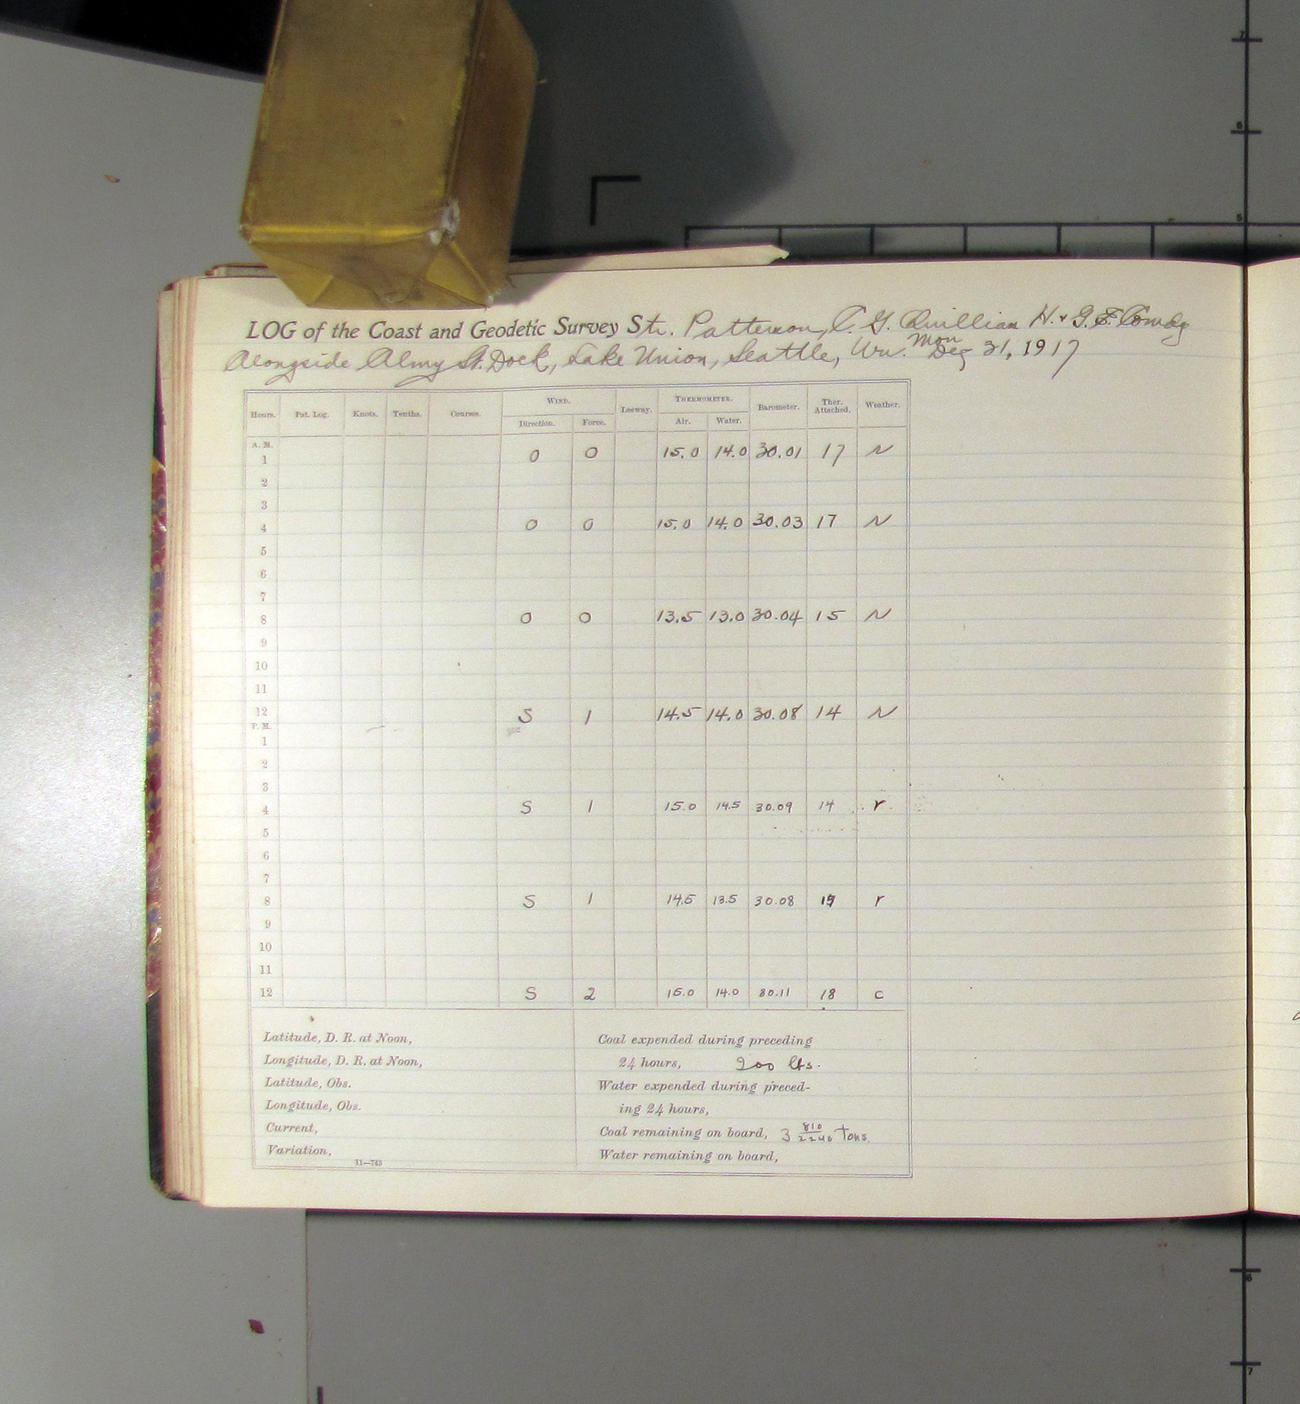 LOG of the Coast and Geodetic Survey Str. Patterson, C. G. Quillian H. & G. E.
Alongside Almy St. Dock, Lake Union, Seattle, Wn. Mon Dec 31, 1917
Hours. Pat. Log. Knots. Tenths. Courses. WIND. Leeway. THERMOMETER. Barometer. Ther. Attached. Weather.
Direction. Force. Air. Water.
A. M.
1 0 0 15.0 14.0 30.01 17 N
2
3
4 0 0 15.0 14.0 30.03 17 N
5
6
7
8 0 0 13.5 13.0 30.04 15 N
9
10
11
12 S 1 14.5 14.0 30.08 14 N
P. M.
1
2
3
4 S 1 15.0 14.5 30.09 14 r
5
6
7
8 S 1 14.5 13.5 30.08 r
9
10
11
12 S 2 15.0 14.0 30.11 18 c
Latitude, D. R. at Noon,
Longitude, D. R. at Noon,
Latitude, Obs.
Longitude, Obs.
Current,
Variation,
11—743
Coal expended during preceding
24 hours, 200 lbs.
Water expended during preced-
ing 24 hours,
Coal remaining on board, 3 810/2240 Tons.
Water remaining on board,